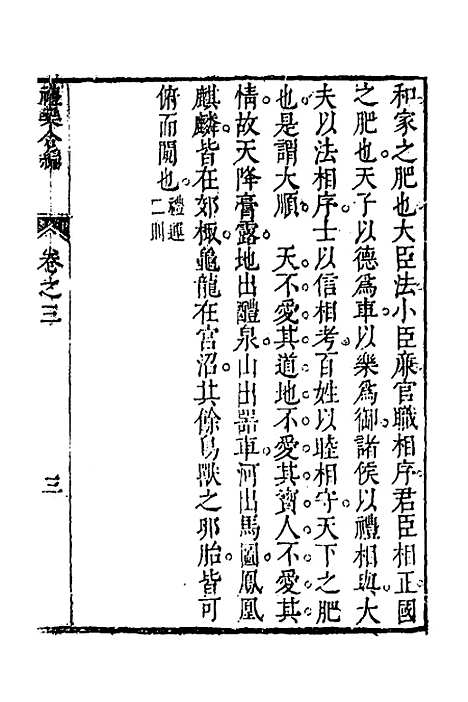 和家之肥也大臣法小臣廉官職相序君臣相正國
之肥也天子以德爲車以樂爲御諸侯以禮相與大
夫以法相序士以信相考百姓以睦相守天下之肥
也是謂大順　天不愛其道地不愛其寶人不愛其
情故天降膏露地出醴泉山出器車河出馬圖鳳凰
麒麟皆在郊棷龜龍在宮沼其餘鳥獸之卵胎皆可
俯而闚也禮運二則
禮樂合編
卷之三
三